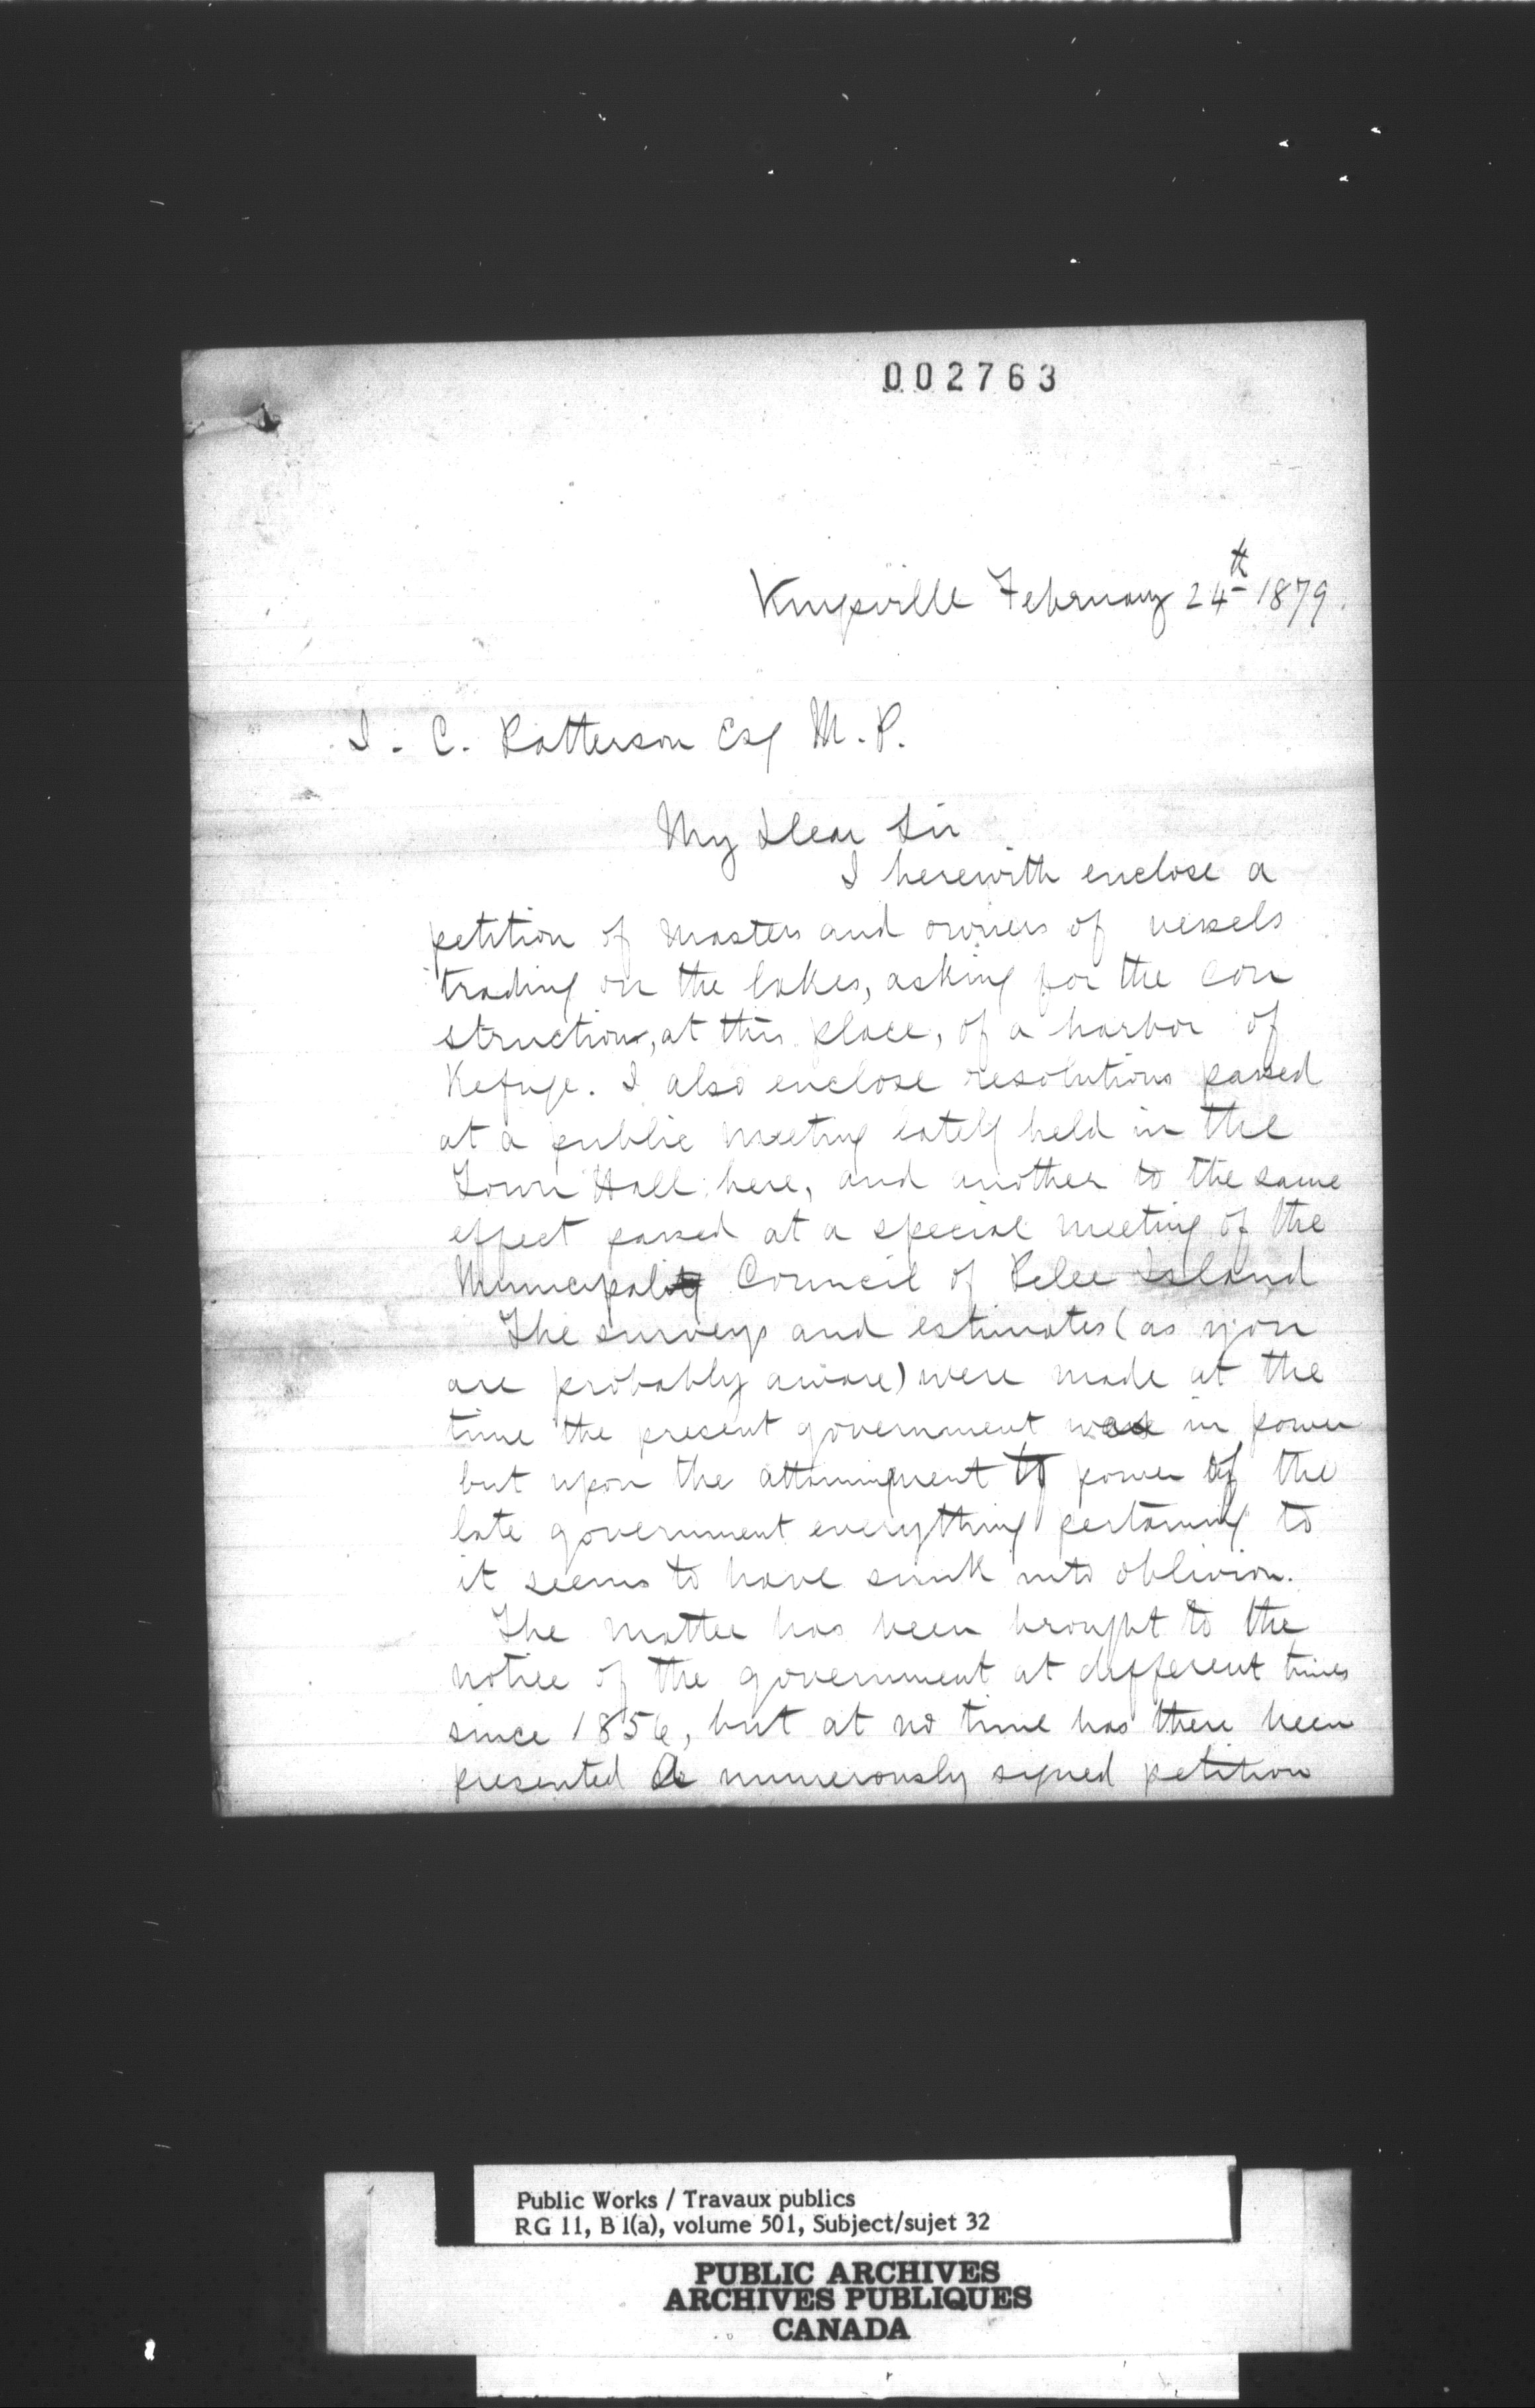 002763
Kingsville February 24th 1879.
J. C. Patterson Esq M. P.
My Dear Sir
I herewith enclose a
petition of masters and owners of vessels
trading on the lakes, asking for the con
struction, at this place, of a harbor of
Refuge. I also enclose resolutions passed
at a public meeting lately held in the
Town Hall here, and another to the same
effect passed at a special meeting of the
Municipality Council of Pelee Island
The surveys and estimates (as you
are probably aware) were made at the
time the present government was in power
but upon the attainment to power of the
late government everything pertaining to
it seems to have sunk into oblivion.
The matter has been brought to the
notice of the government at different times
since 1856, but at no time has there been
presented a numerously signed petition
Public Works / Travaux publics
RG 11, B 1(a), volume 501, Subject/sujet 32
PUBLIC ARCHIVES
ARCHIVES PUBLIQUES
CANADA